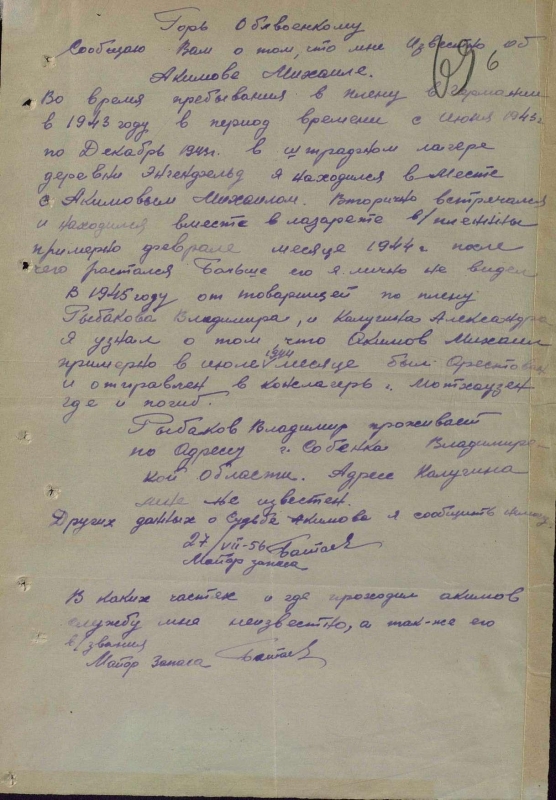 Горь Облвоенкому
Сообщаю Вам о том, что мне Известно об
Акимове Михаиле.
69 6
Во время пребывания в плену в Германии
в 1943 году в период времени с Июня 1943 г.
по Декабрь 1943 г. в штрафном лагере
деревни Энгенфельд я находился в Месте
с Акимовым Михаилом. Вторично встречался
и находился вместе в лазарете в/пленных
примерно феврале месяце 1944 г после
чего растался Больше его я лично не видел
В 1945 году от товарищей по плену
Рыбакова Владимира, и Калугина Александра
я узнал о том что Акимов Михаил
примерно в июле 1944 месяце был Арестован
и отправлен в концлагерь г. Мотхаузен
где и погиб.
Рыбаков Владимир проживает
по Адресу г. Собенка Владимирс
кой Области. Адрес Калугина
мне не известен.
Других данных о Судьбе Акимова я сообщить не могу
27/VII-56
Майор запаса
В каких частях и где проходил акимов
службу мне неизвестно, а так-же его
в/звания
Майор Запаса